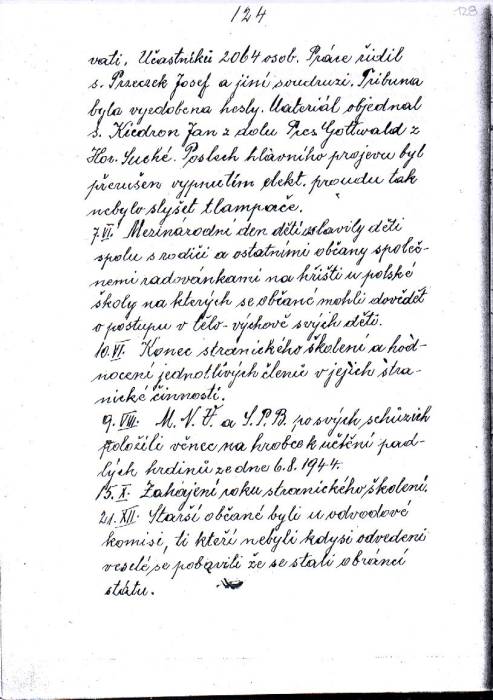 124
129
vati. Učastníků 2064 osob. Práce řídil
s. Przeczek Josef a jiní soudruzi. Tribuna
byla vyzdobena hesly. Materiál objednal
s. Kiedron Jan z dolu Pres Gottwald z
Hor. Suché. Poslech hlavního projevu byl
přerušen vypnutím elekt. proudu tak
nebylo slyšet tlampače.
7.VI. Mezinárodní den dětí oslavily děti
spolu s rodiči a ostatními občany společ-
nemi radovánkami na hřišti u polské
školy na kterých se občané mohli dovědět
o postupu v tělo-výchově svých dětí.
10.VI. Konec stranického školení a hod-
nocení jednotlivých členů v jejich stra-
nické činnosti.
9.VIII. M.N.V. a S.P.B. po svých schůzích
položili věnec na hrobce k uctění pad-
lých hrdinů ze dne 6.8.1944.
15.X. Zahájení roku stranického školení.
21.XII. Starší občané byli u odvodové
komisi, ti kteří nebyli kdysi odvedeni
veselé se pobavili že se stali obránci
státu.